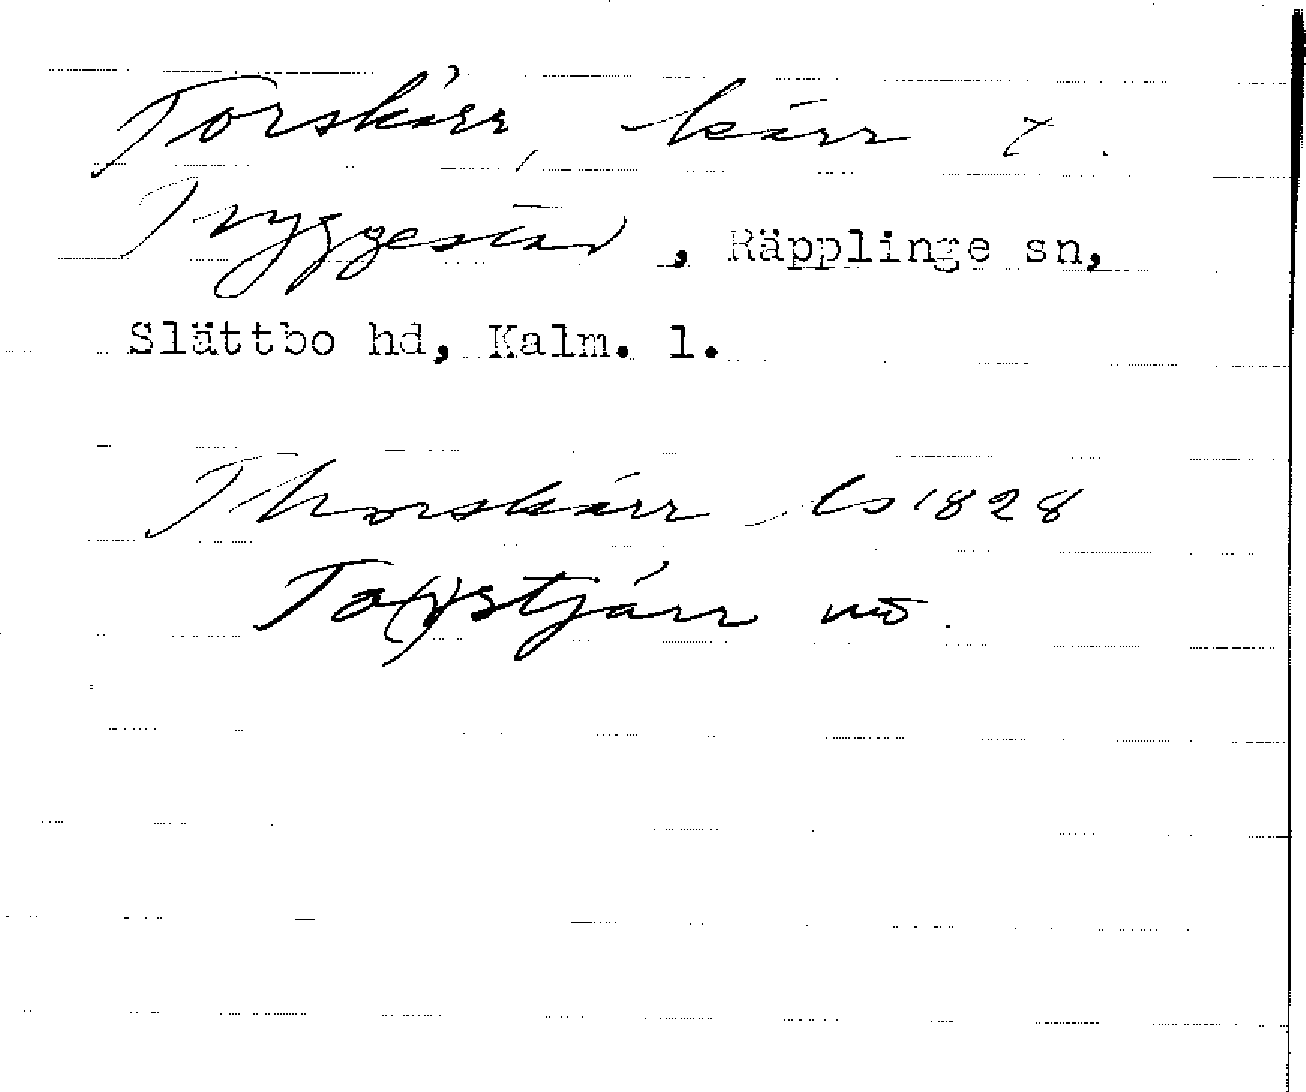 Torskärr, kärr t.
Tryggestad, Räpplinge sn,
Slättbo hd, Kalm. l.
Thorskärr Ls 1828
To(r)stjärr mö.